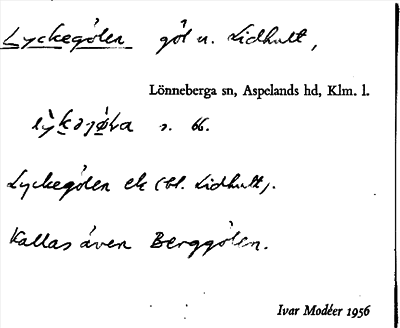 Lyckegölen göl u. Lidhult,
Lönneberga sn, Aspelands hd, Klm. l.
s. 66.
Lyckegölen ek (bl. Lidhult).
Kallas även Berggölen.
Ivar Modéer 1956